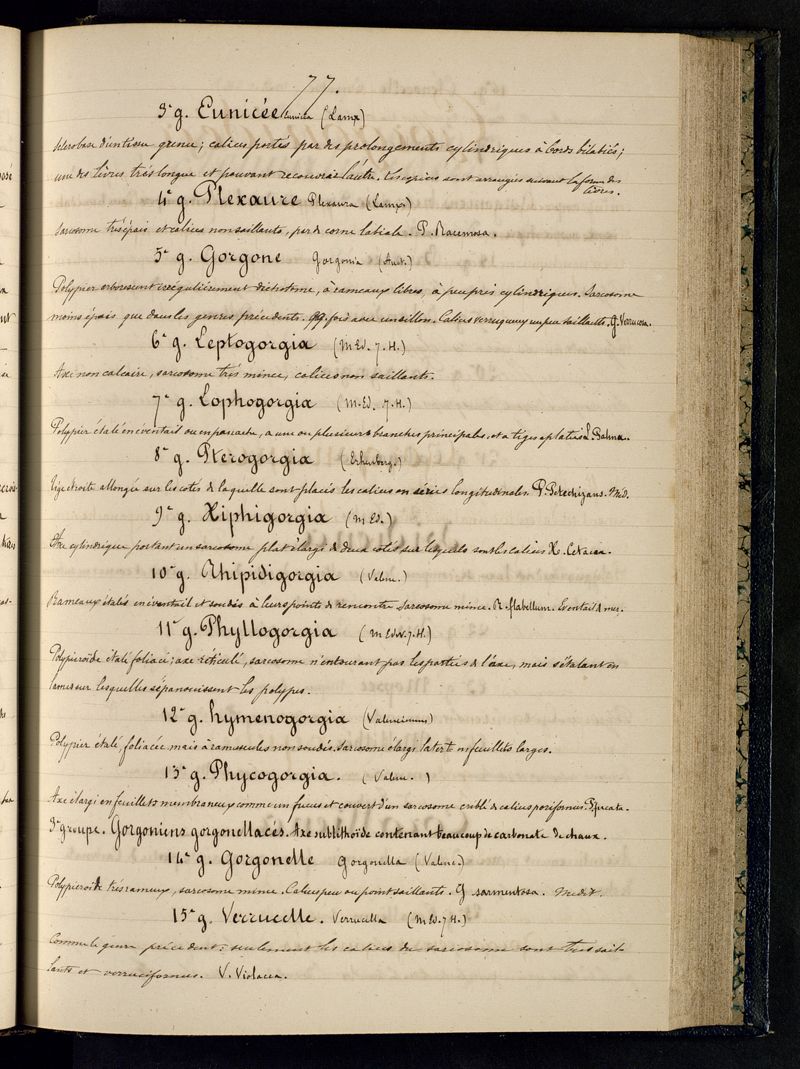 77.
3e g. Eunicée Eunicea (Lamx)
Sclerobase d'un tissu grenu; calices portés par des prolongements cylindriques à bords bilabiés;
une des lèvres très longue et pouvant recouvrir l'autre. Les espèces sont arrangées suivant la forme des
lèvres.
4e g. Plexaure Plexaura (Lamx)
Sarcosome très épais et calices non saillants, par de corne labiale. P. Racemosa.
5e g. Gorgone Gorgonia (Aut.)
Polypier arborescent irrégulièrement dichotome, à rameaux libres, à peu près cylindriques. Sarcosome
moins épais que dans les genres précédents. avec un sillon. Calices verruqueux un peu saillants. G. Verrucosa.
6e g. Leptogorgia (M. Ed. J. H.)
Axe non calcaire, sarcosome très mince, calices non saillants.
7e g. Lophogorgia (M. Ed. J. H.)
Polypier étalé en éventail ou en panache, a une ou plusieurs branches principales, et a tiges aplaties. L. Palma.
8e g. Pterogorgia (Erhenberg.)
Tige etroite allongée sur les cotés de laquelle sont placés les calices en séries longitudinales. P. Petechizans. Méd.
9e g. Xiphigorgia (M. Ed.)
Axe cylindrique portant un sarcosome plat élargi de deux cotés sur lesquels sont les calices X. Setacea.
10e g. Rhipidigorgia (Valen.)
Rameaux étalés en éventail et soudés à leurs points de rencontre Sarcosome mince. R. flabellum. Eventail d. mer.
11e g. Phyllogorgia (M. Edw. J. H.)
Polypieroïde étalé foliacé; axe réticulé, sarcosome n'entourant pas les parties de l'axe, mais s'étalant en
lames sur lesquelles s'épanouissent les polypes.
12e g. Hymenogorgia (Valenciennes)
Polypier étalé, foliacée mais à ramuscules non soudés. Sarcosome élargi latert en feuillets larges.
13e g. Phycogorgia. (Valen. )
Axe élargi en feuillets membraneux comme un fucus et couvert d'un sarcosome criblé de calices poriformes. P. fucata.
3e groupe. Gorgoniens gorgonellacés. Axe sublithoïde contenant beaucoup de carbonate de chaux.
14e g. Gorgonelle Gorgonella (Valenc.)
Polypieroïde très rameux, sarcosome mince. Calices peu ou point saillants. G sarmentosa. Medit.
15e g. Verrucelle. Verrucella (M. Ed. J. H.)
Comme le genre précédent; seulement les calices du sarcosome sont très sail-
lants et verruciformes. V. Violacea.